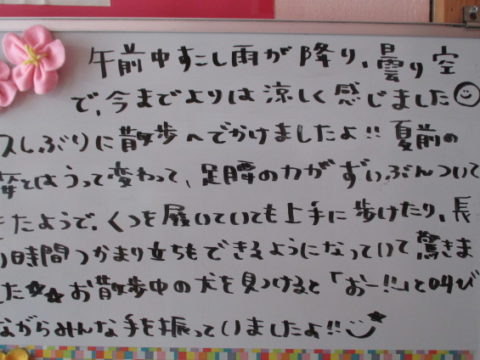 午前中すこし雨が降り、曇り空
で、今までよりは涼しく感じました
久しぶりに散歩へでかけましたよ!!夏前の
とはうって変わって、足腰の力がずいぶんついて
きたようで、くつを履いていても上手に歩けたり、長
い時間つかまり立ちもできるようになっていて驚きま
した☆☆お散歩中の犬を見つけると「おー!!」と叫び
ながらみんな手を振っていましたよ!!